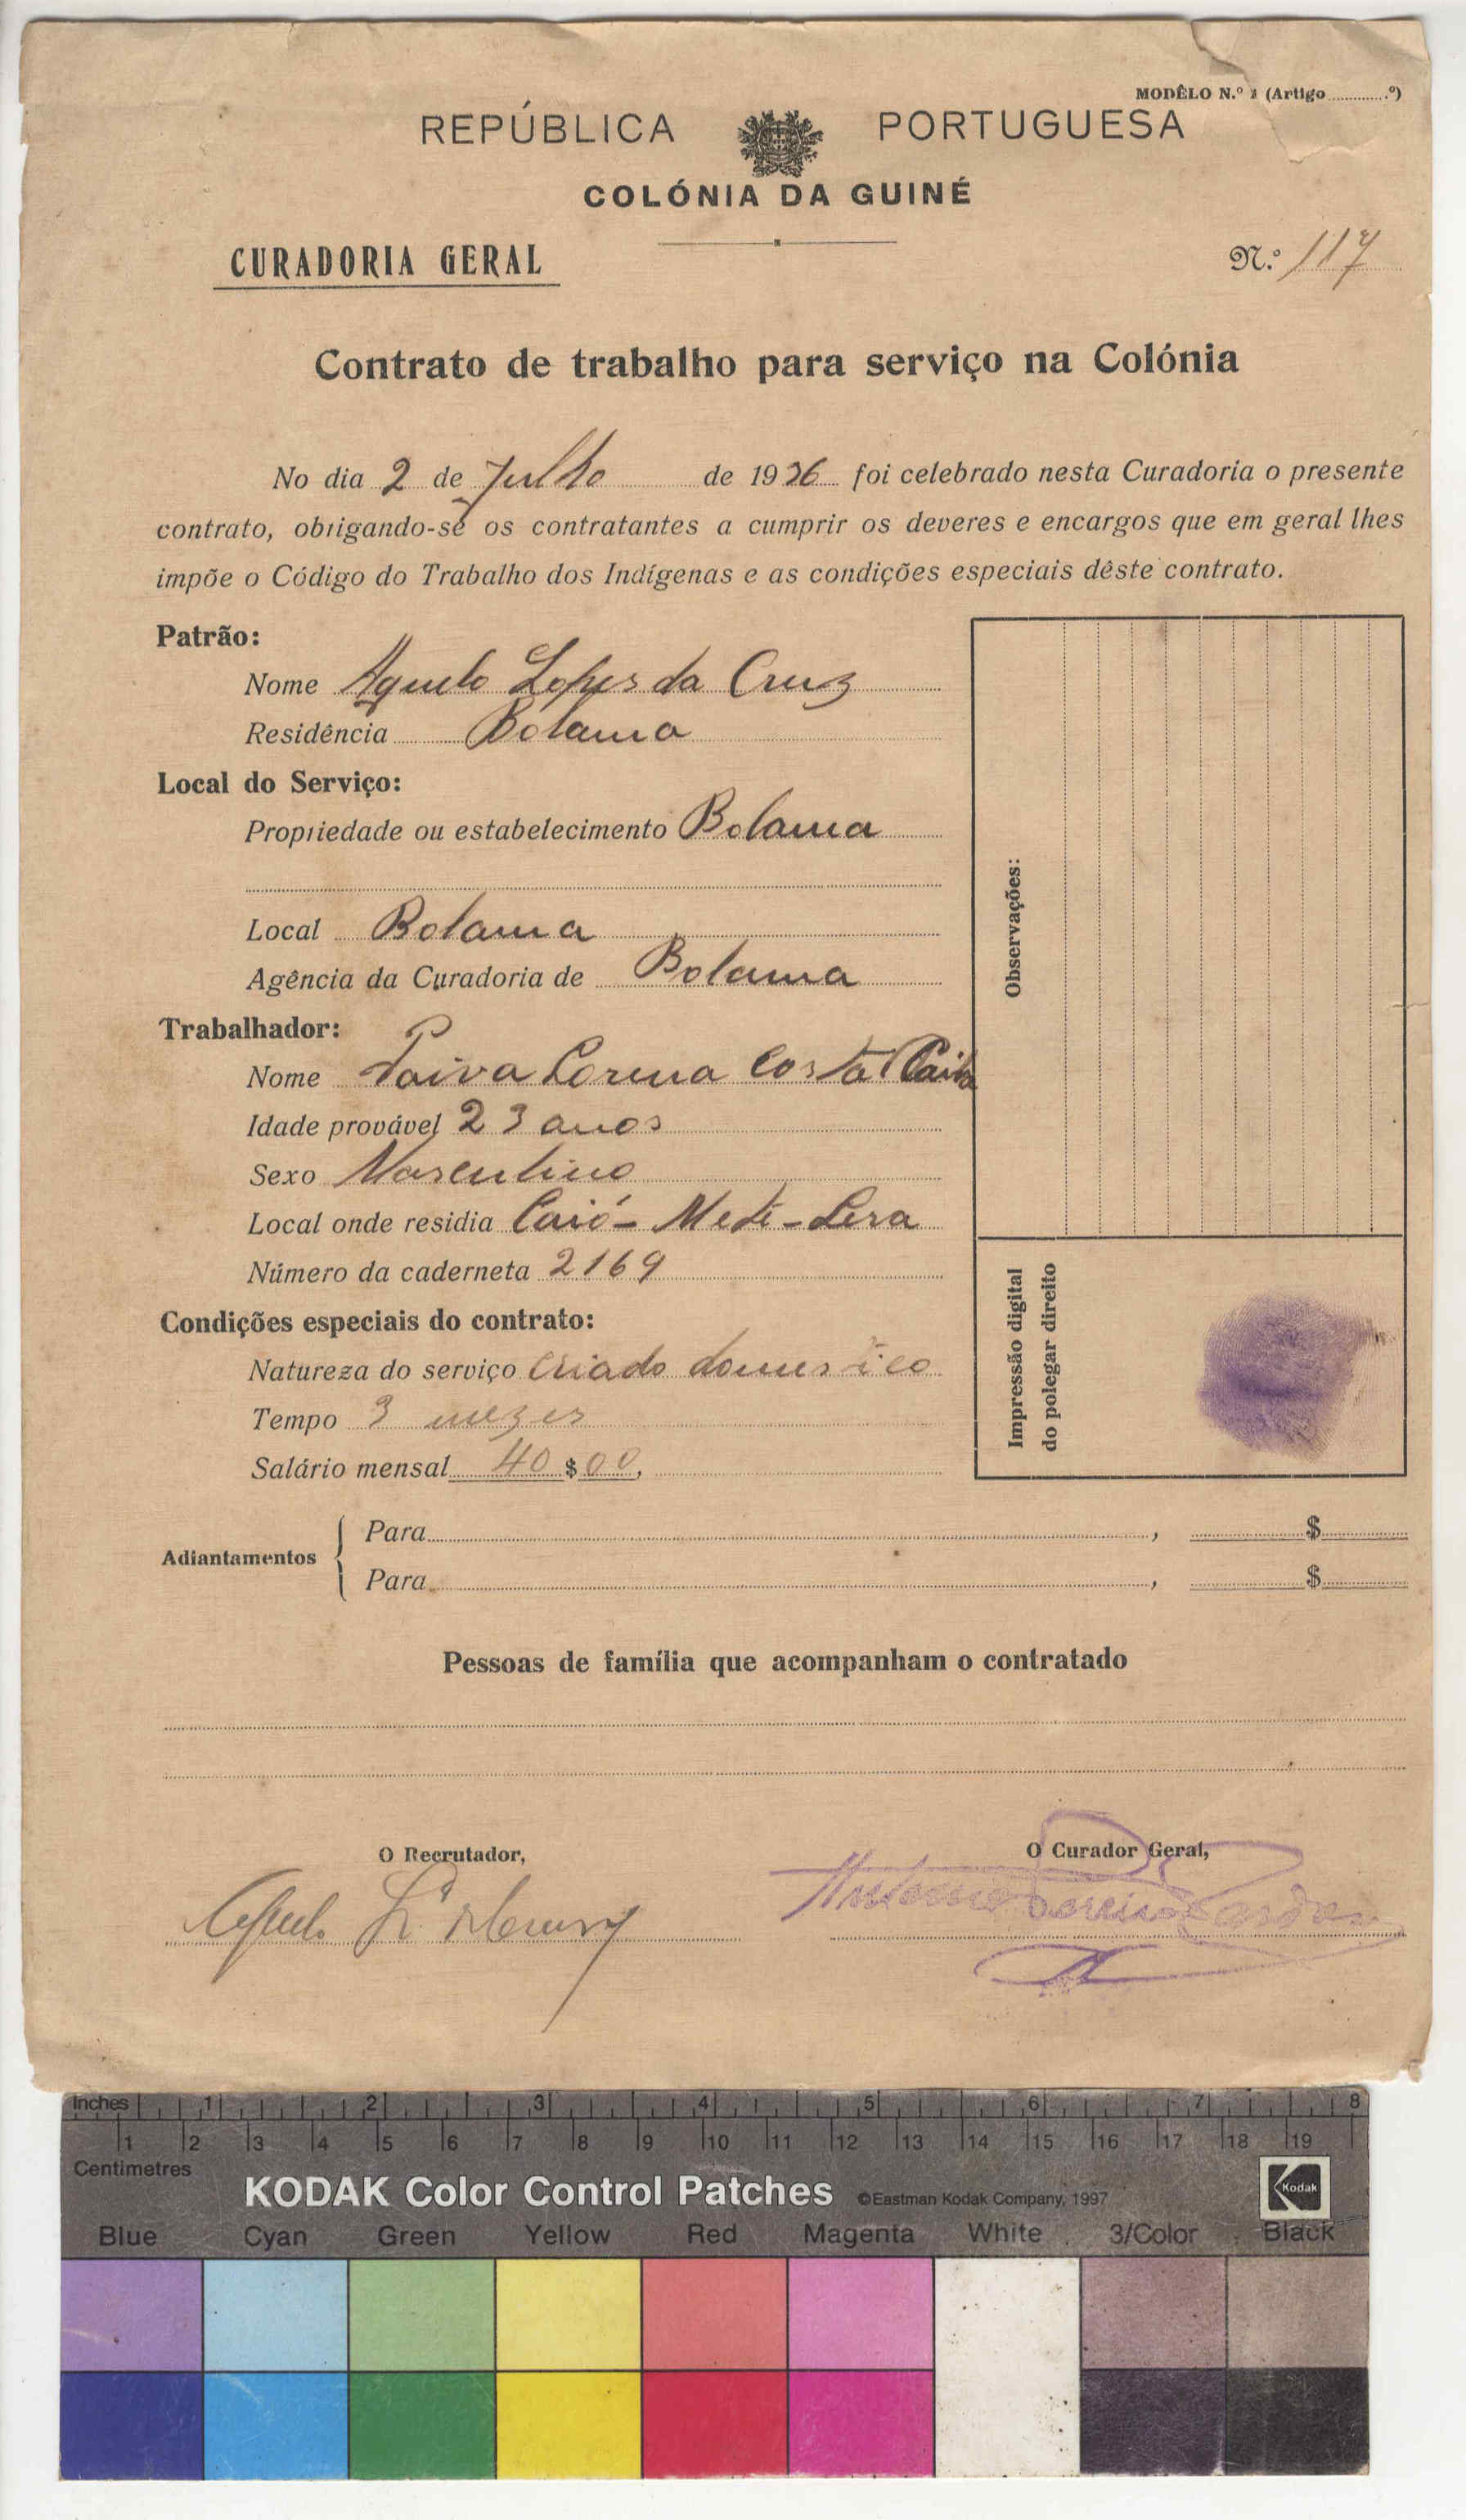 MODÊLO N.º 1 (Artigo ..........º)
REPÚBLICA PORTUGUESA
COLÓNIA DA GUINÉ
CURADORIA GERAL
N.º 117
Contrato de trabalho para serviço na Colónia
No dia 2 de Julho de 1936 foi celebrado nesta Curadoria o presente
contrato, obrigando-se os contratantes a cumprir os deveres e encargos que em geral lhes
impõe o Código do Trabalho dos Indígenas e as condições especiais dêste contrato.
Patrão:
Nome Aguelo Lopes da Cruz
Residência Bolama
Local do Serviço:
Propriedade ou estabelecimento Bolama
Local Bolama
Agência da Curadoria de Bolama
Trabalhador:
Nome Paiva Correia Costa
Idade provável 23 anos
Sexo Masculino
Local onde residia Caió-
Número da caderneta 2169
Condições especiais do contrato:
Natureza do serviço criado domestico
Tempo 3 mezes
Salário mensal 40$00,
Observações:
Impressão digital
do polegar direito
Adiantamentos
Para , $
Para , $
Pessoas de família que acompanham o contratado
O Recrutador,
O Curador Geral,
Antonio Pereira Cardoso
Inches 1 2 3 4 5 6 7 8
1 2 3 4 5 6 7 8 9 10 11 12 13 14 15 16 17 18 19
Centimetres
KODAK Color Control Patches ©Eastman Kodak Company, 1997
Kodak
Blue Cyan Green Yellow Red Magenta White 3/Color Black